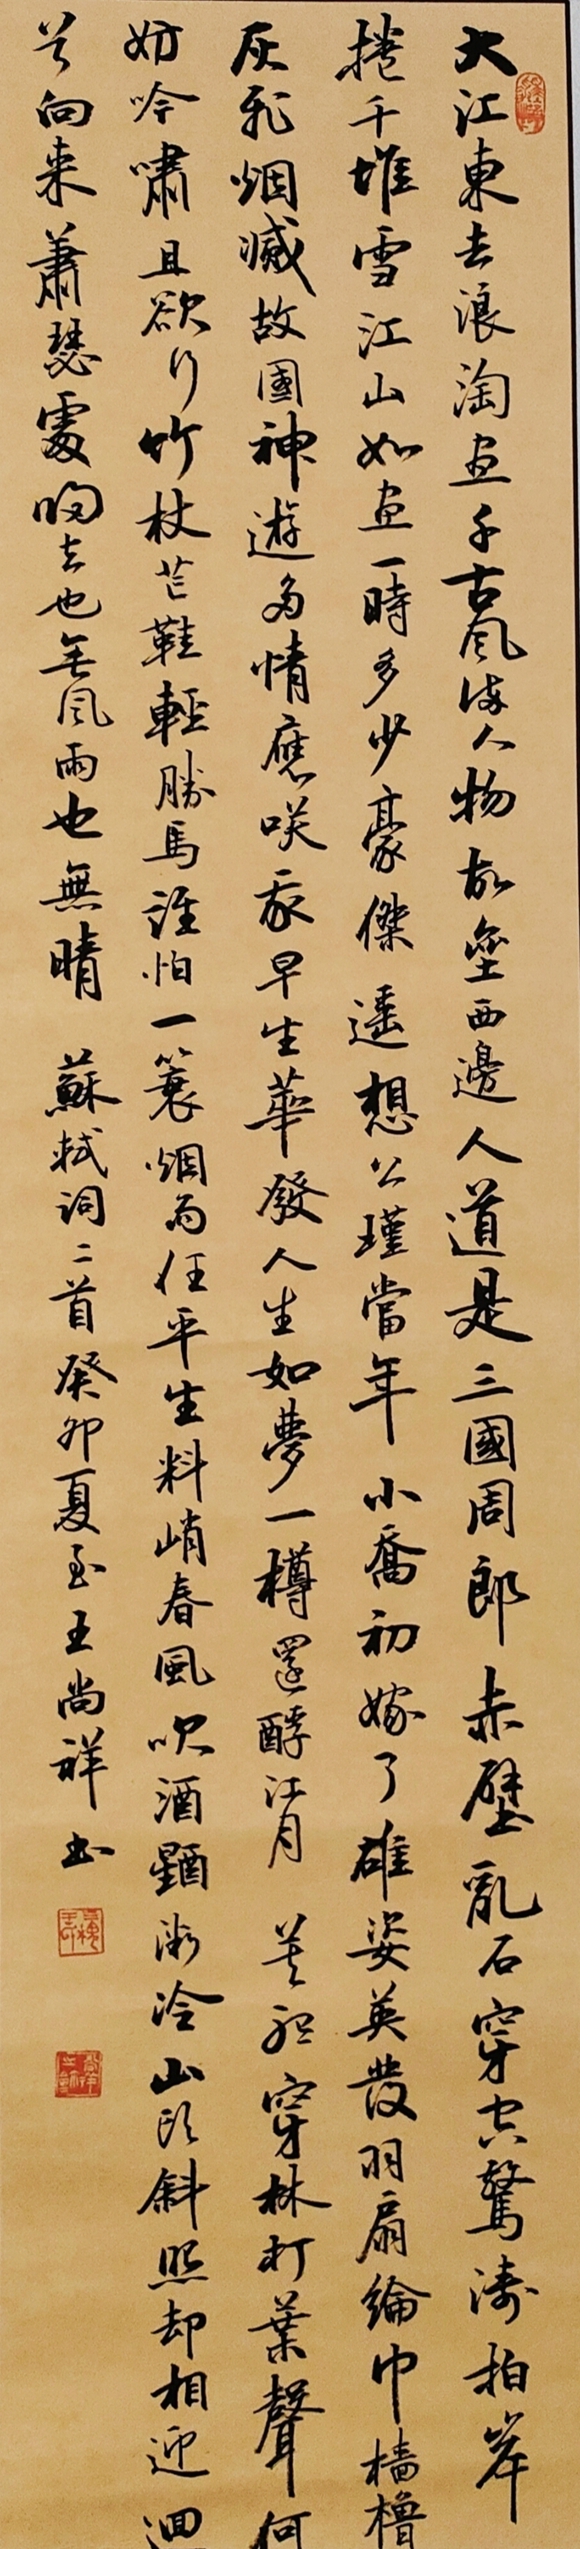 大江東去浪淘盡千古風流人物故壘西邊人道是三國周郎赤壁亂石穿空驚濤拍岸
捲千堆雪江山如畫一時多少豪傑遥想公瑾當年小喬初嫁了雄姿英發羽扇綸巾檣櫓
灰飛烟滅故國神遊多情應笑我早生華發人生如夢一樽還酹江月莫聽穿林打葉聲何
妨吟嘯且欲行竹杖芒鞋輕勝馬誰怕一蓑烟雨任平生料峭春風吹酒醒微冷山頭斜照却相迎迴
首向来蕭瑟處歸去也無風雨也無晴 蘇軾詞二首癸卯夏至王尚祥書